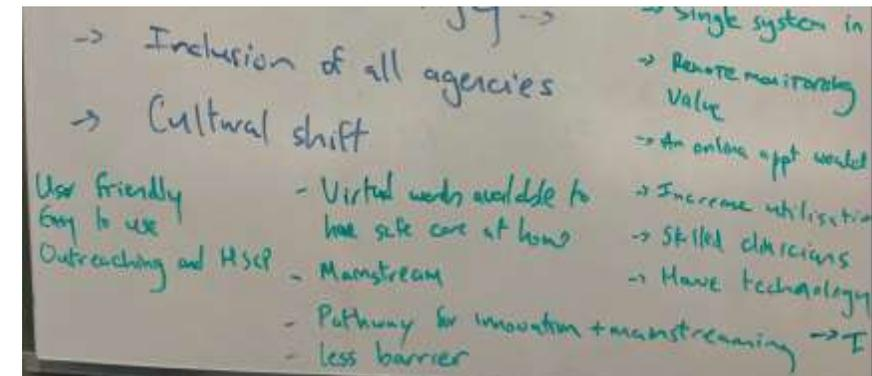 -> Inclusion of all agencies
-> Cultural shift
User friendly
Easy to use
Outreaching and HSCP
- Virtual wards available to
have safe care at home
- Mainstream
- Pathway for innovation + mainstreaming
- less barrier
-> Single system in
-> Remote monitoring
Value
-> An online appt would
-> Increase utilisatio
-> Skilled clinicians
-> Have technology
-> I